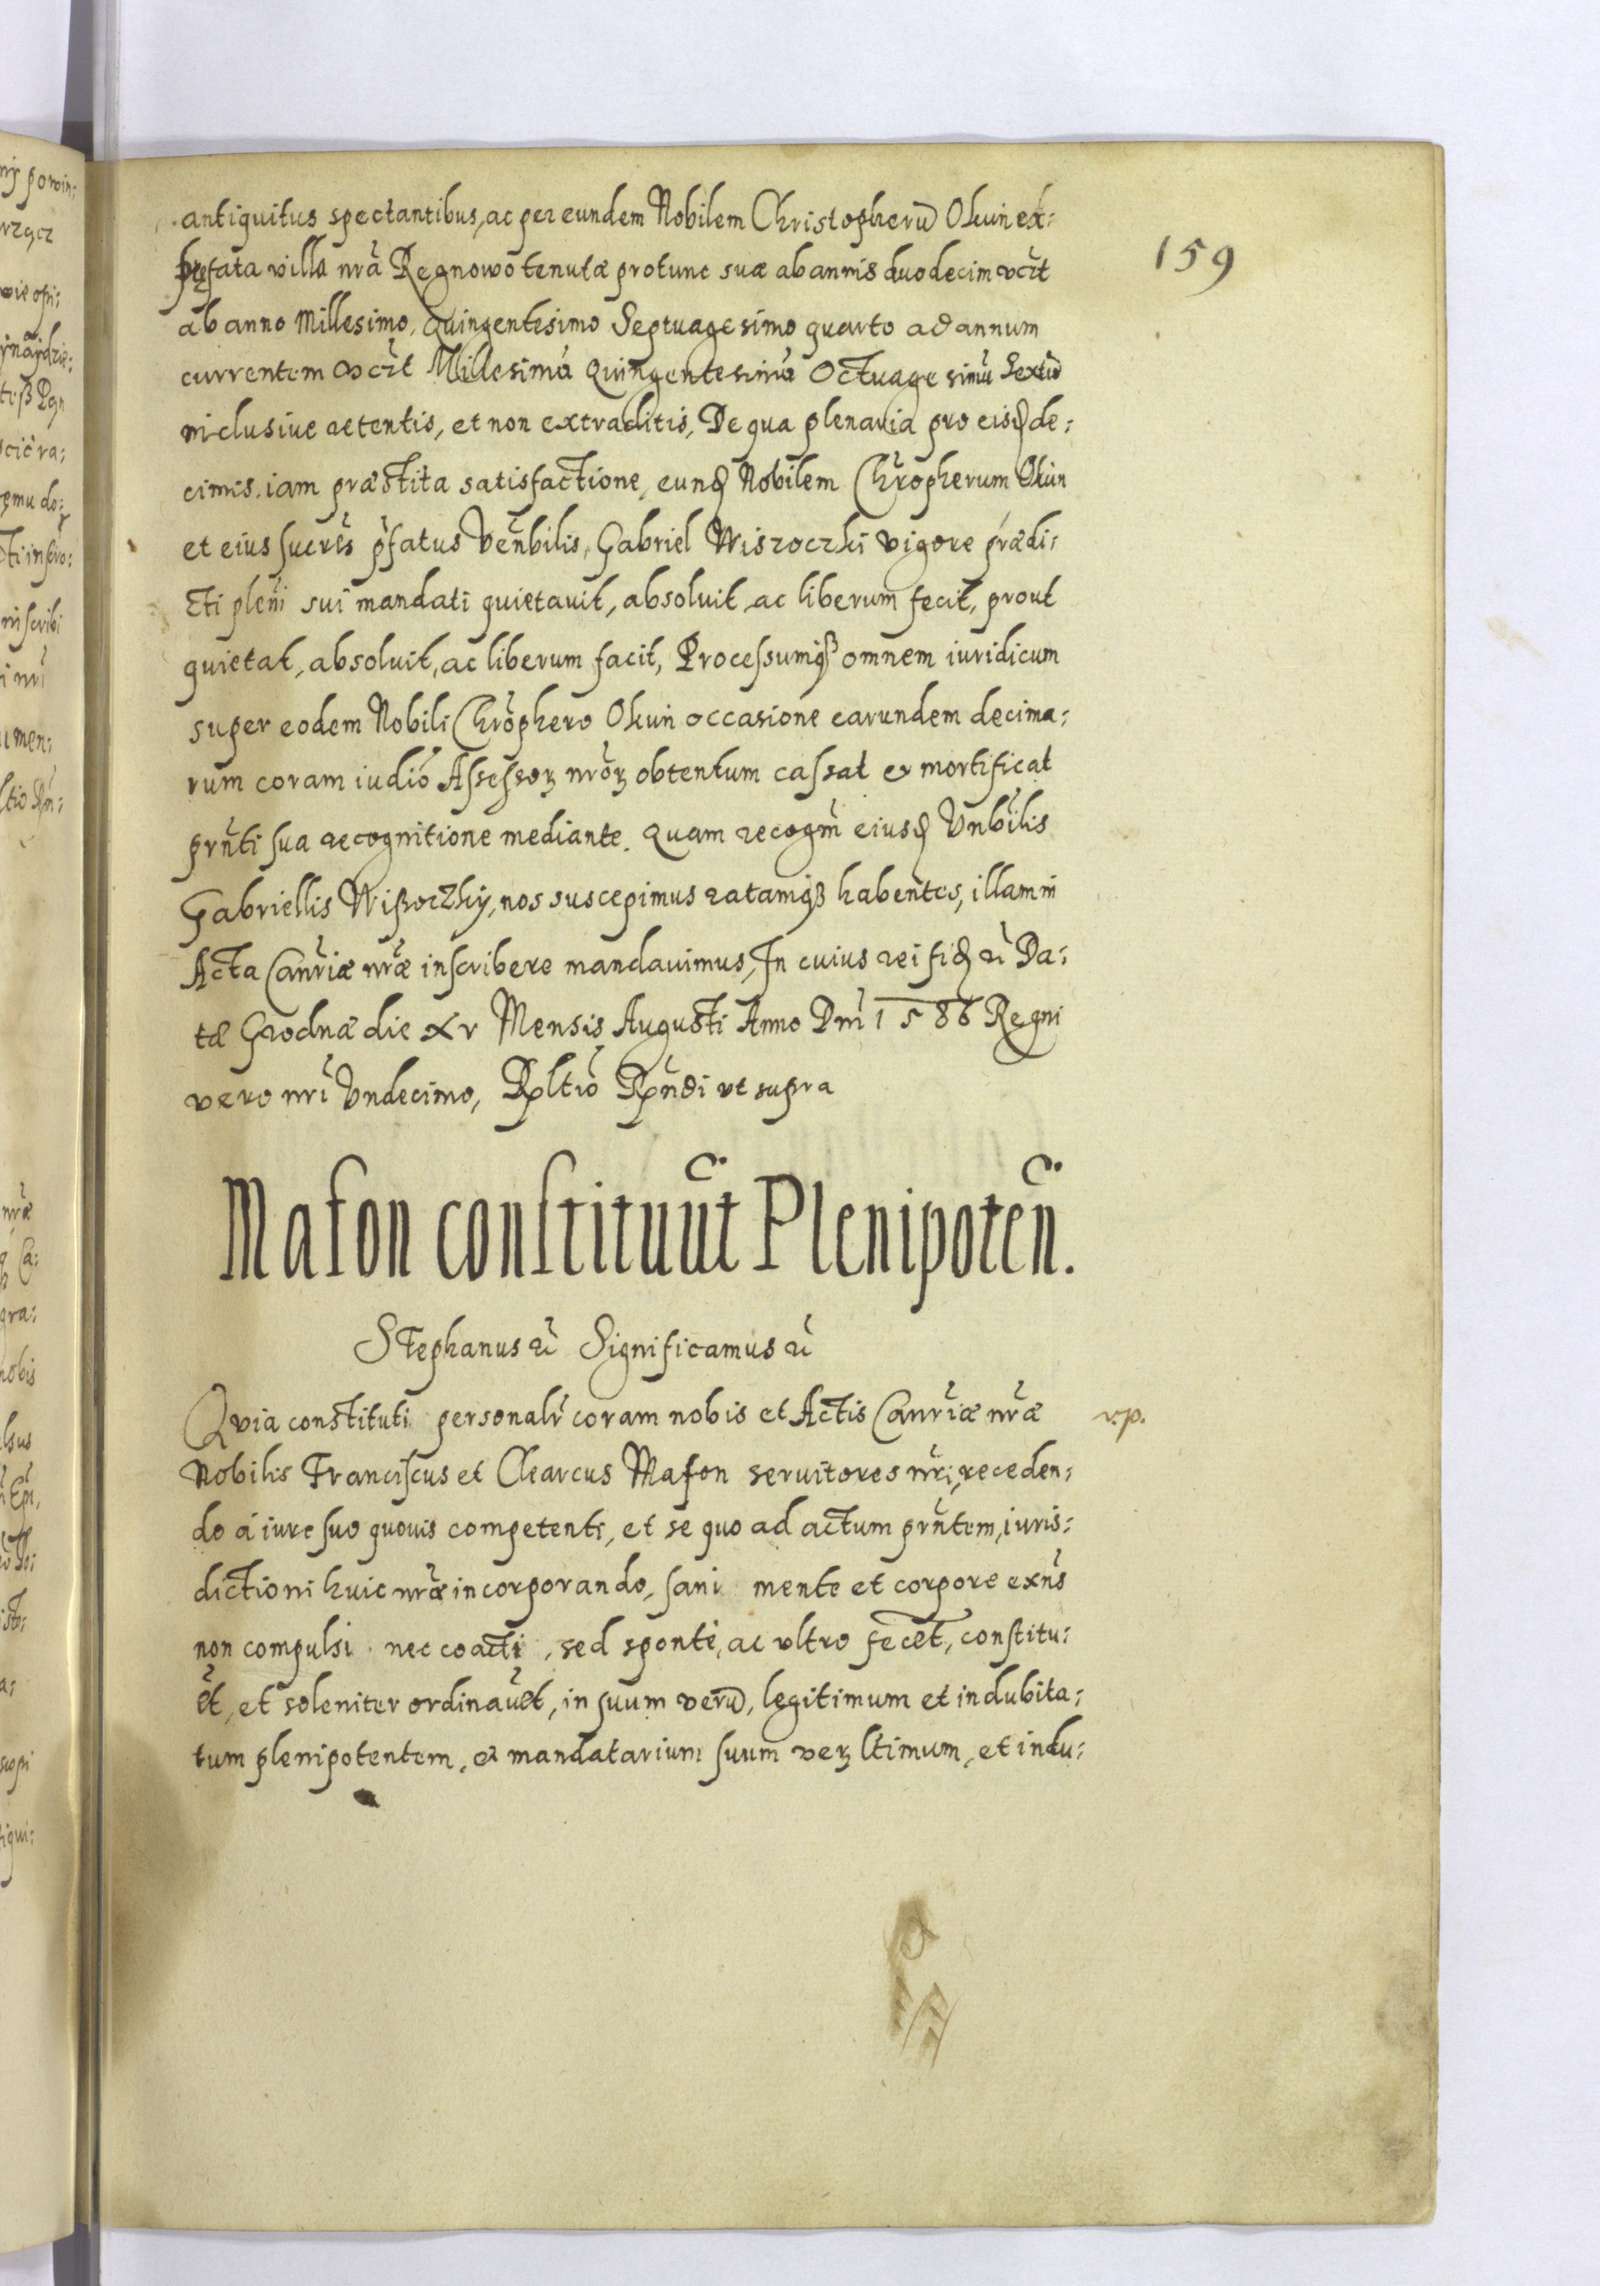 159
antiquitus spectantibus, ac per eundem Nobilem Christopherũ Okuń ex:
præfata villa nrã Regnowo tenutæ protunc suæ ab annis duodecim vczt
ab anno Millesimo, Quingentesimo Septuagesimo quarto ad annum
currentem vczt Millesimũ Quingentesimũ Octuagesimũ Sextũ
inclusiue retentis, et non extraditis, De qua plenaria pro eisd de:
cimis iam præstita satisfactione, eund Nobilem Chrõpherum Okuń
et eius sucrẽs pfatus Venbilis, Gabriel Wiszoczki vigore prædi:
cti pleni sui mandati quietauit, absoluit, ac liberum fecit, prout
quietat, absoluit, ac liberum facit, Processumqз omnem iuridicum
super eodem Nobili Chrõphero Okuń occasione earundem decima:
rum coram iudiõ Assessoꝝ nrõꝝ obtentum cassat et mortificat
prñti sua recognitione mediante. Quam recogñ eiusd Vnbilis
Gabriellis Wißoczky, nos suscepimus ratamqз habentes, illam in
Acta Canrĩæ nræ inscribere mandauimus, In cuius rei fid ꝛc Da:
tæ Grodnæ die xv Mensis Augusti Anno Dni 1586 Regni
vero nri Vndecimo, Rltio Rndi vt supra
Mafon constituũt Plenipoteñ.
Stephanus ꝛc Significamus ꝛc
Quia constituti personalr coram nobis et Actis Canrĩæ nræ
v.p.
Nobilis Franciscus et Clearcus Mafon seruitores nri, receden:
do á iure suo quouis competenti, et se quo ad actum prñtem, iuris:
dictioni huic nræ incorporando, sani mente et corpore exñs
non compulsi nec coacti, sed sponte, ac vltro fecẽt, constitu:
ẽt, et soleniter ordinauẽt, in suum verũ, legitimum et indubita:
tum plenipotentem, et mandatarium suum veꝝ ltimum, et indu: